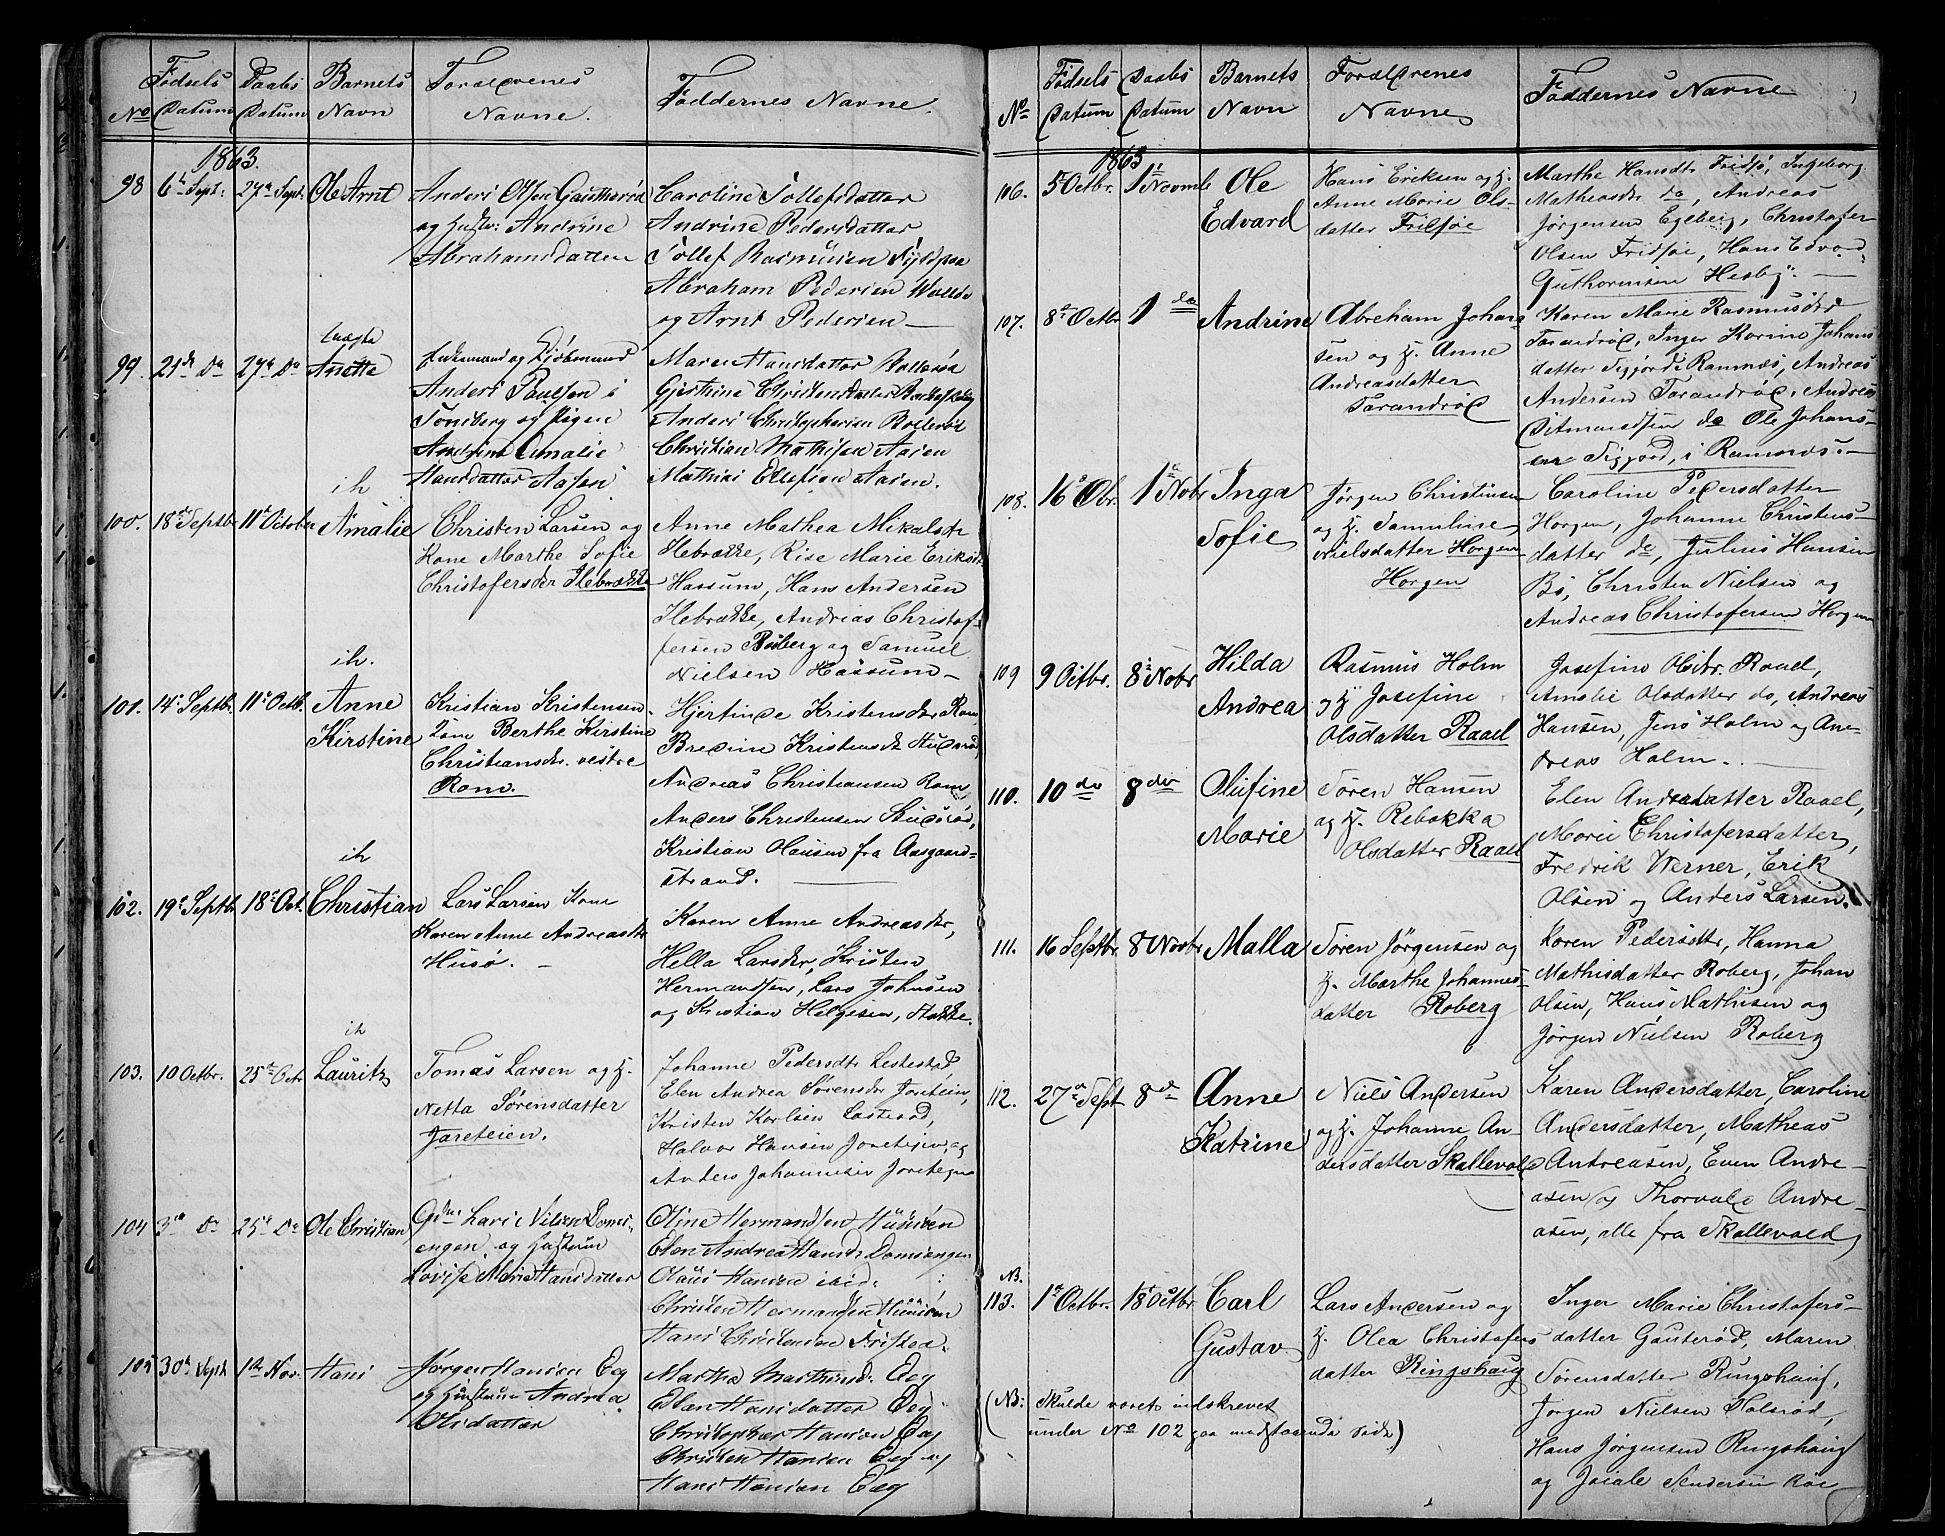 No
Fødsels Datum
Daabs Datum
Barnets Navn
Forældrenes Navne.
Faddernes Navne.
1863.
98 6te Sept: 27de Sept: Ole Arnt
Anders Olsen
og Hustru: Andrine
Abrahamsdatter
Caroline Tollefsdatter
Andrine Pedersdatter
Tollef Rasmussen
Abraham Pedersen
og Arnt Pedersen
99. 21de Do 27de Do uægte Anetta
Enkemand og
Anders Paulsen i
Tønsberg og Pigen
Andrine Amalie
Hansdatter Aasen
Maren Hansdatter Bollerød
Christensdatter
Anders Christophersen Bollerød
Christian Mathisen Aasen
Mathias Ellefsen Aasen.
ih
100. 18de Septbr 11te October Amalie
Christen Larsen og
Kone Marthe Sofie
Christofersdr Ilebrække
Anne Mathea Mikalsdr
Ilebrække, Rise Marie Eriksdr
Hassum, Hans Andersen
Ilebrække, Andrias Christof-
fersen Roberg og Samuel
Nielsen Hassum
ih.
101. 14de Septbr. 11te Octb. Anne
Kirstine
Kristian Kristensen
Kone Berthe Kirstine
Christiansdr. vestre
Rom.
Kristensdr Rom
Bredine Kristensdr
Andreas Christiansen Rom
Anders Christensen
Kristian Hansen fra Aasgaard-
strand.
ih
102. 19de Septbr 18de Oct. Christian
Lars Larsen Kone
Karen Anne Andreasdr
Husø.
Karen Anne Andreasdr,
Hella Larsdr, Kristen
Hermandsen, Lars Johnsen
og Kristian Helgesen,
ih
103. 10 Octbr. 25de Octr Lauritz
Tomas Larsen og H.
Netta Sørensdatter
Jareteien.
Johanne Pedersdtr
Elen Andrea Sørensdr Jareteien,
Kristen Karlsen
Halvor Hansen og
Anders Johannesen
104 3die Do 25de Do Ole Christian
Lars Nilsen Doms-
engen og Hustrue
Lovise Marie Hansdatter
Oline Hermandsen
Elen Andrea Hansdr Domsengen
Olaus Hansen ibid:
Christen Hermandsen
Hans Christensen
105 30te Sept 1ste Nov. Hans
Jørgen Hansen Eeg
og Hustrue Andrea
Olsdatter
Martha Eeg
Elen Hansdatter Eeg
Christopher Hansen Eeg
Christen Hansen Eeg og
Hans Hansen Eeg
No
Fødsels Datum
Daabs Datum
Barnets Navn
Forældrenes Navne
Faddernes Navne
1863
106. 5te Octbr. 1ste Novmb Ole
Edvard
Hans Eriksen og H.
Anne Marie Ols-
datter Fritsøe
Marthe Hansdtr Fridsø, Ingeborg
Matheasdr do, Andreas
Jørgensen Egeberg, Christofer
Olsen Fridsøe, Hans Edvard
Guthormsen Hesby.
107. 8de Octbr 1 do Andrine
Abreham Johan-
sen og H. Anne
Andreasdatter
Tarandrød
Karen Marie Rasmusdtr
Tarandrød, Inger Karine Johans
datter Ramnæs, Andreas
Andersen Tarandrød, Andreas
Ditmandsen do Ole Johans-
sen i Ramnæs.
108. 16de Obr. 1ste Nobr Inga
Sofie
Jørgen Christensen
og H. Samuline
Nielsdatter Horgen
Horgen
Caroline Pedersdatter
Horgen, Johanne Christens-
datter do, Julius Hansen
Bø, Christen Nielsen og
Andreas Christofersen Horgen
109 9 Octbr. 8de Nobr Hilda
Andrea
Rasmus Holm
og H Josefine
Olsdatter Raael
Josefine Olsdtr. Raael,
Amalie Olsdatter do, Andreas
Hansen, Jens Holm og An-
dreas Holm.
110. 10 do 8 do Olufine
Marie
Søren Hansen
og H. Rebekka
Olsdatter Raael
Elen Andersdatter Raael,
Marie Christofersdatter,
Fredrik Werner, Erik
Olsen og Anders Larsen.
111. 16 Septbr. 8 Novbr Malla
Søren Jørgensen og
H. Marthe Johannes-
datter Roberg
Karen Pedersdtr, Hanna
Mathisdatter Roberg, Johan
Olsen, Hans Mathisen og
Jørgen Nielsen Roberg
112. 27de Sept 8de Anne
Katrine
Niels Andersen
og H. Johanne An-
dersdatter Skallevold
Karen Andersdatter, Caroline
Andersdatter, Matheas
Andreasen, Even Andre-
asen og Thorvald Andre-
asen, alle fra Skallevold
NB.
113. 1ste Octbr. 18de Octbr Carl
Gustav
Lars Andersen og
H. Olea Christofers
datter Ringshaug
Inger Marie Christofers-
datter Gauterød, Maren
Sørensdatter Ringshaug,
Jørgen Nielsen Holsrød,
Hans Jørgensen Ringshaug
og
(NB: Skulde været indskrevet
under No 102 paa modstaaende side)